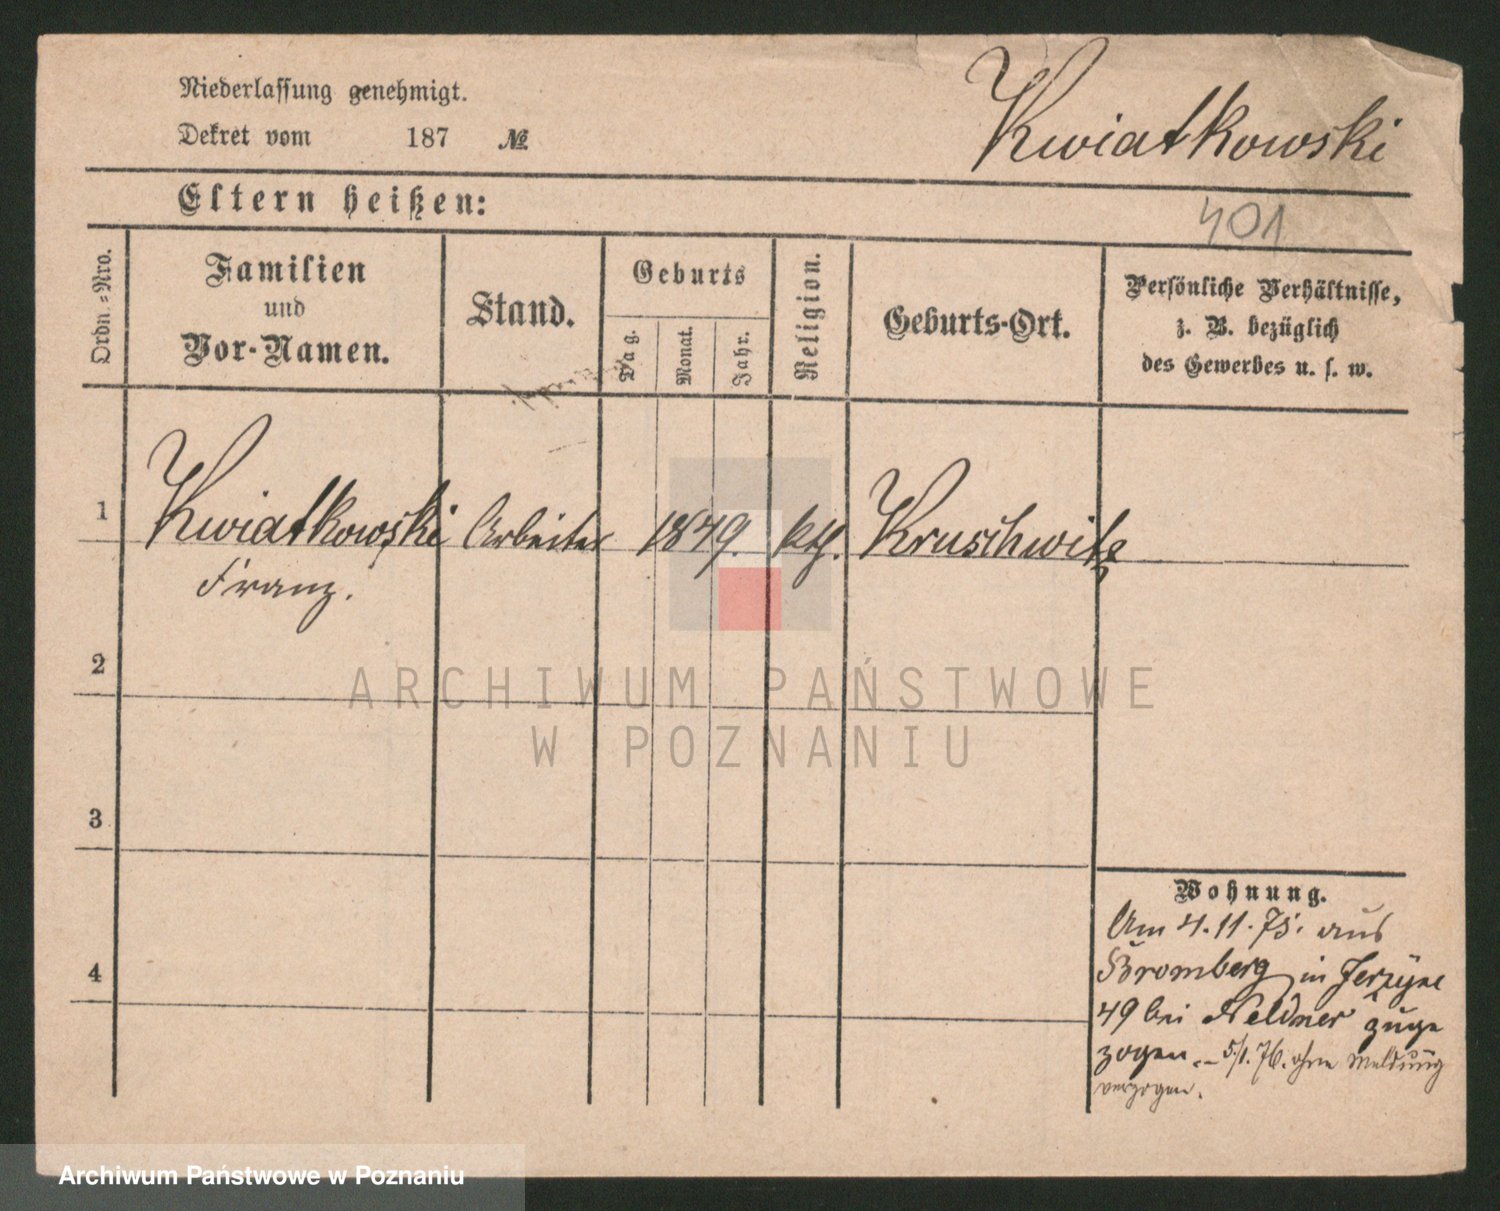 Niederlassung genehmigt.
Dekret vom 187 №
Kwiatkowski
Eltern heißen:
401
Ordn.=Nro.
Familien
und
Vor-Namen.
Stand.
Geburts
Tag.
Monat.
Jahr.
Religion.
Geburts-Ort.
Persönliche Verhältnisse,
z. B. bezüglich
des Gewerbes u. s. w.
1 Kwiatkowski Arbeiter 1849. kth. Kruschwitz
Franz.
2
3
4
Wohnung.
Am 4.11.75. aus
Bromberg in Jerzyce
49 bei Feldner zuge
zogen. – 5/1.76. ohne Meldung
verzogen.
ARCHIWUM PAŃSTWOWE
W POZNANIU
Archiwum Państwowe w Poznaniu